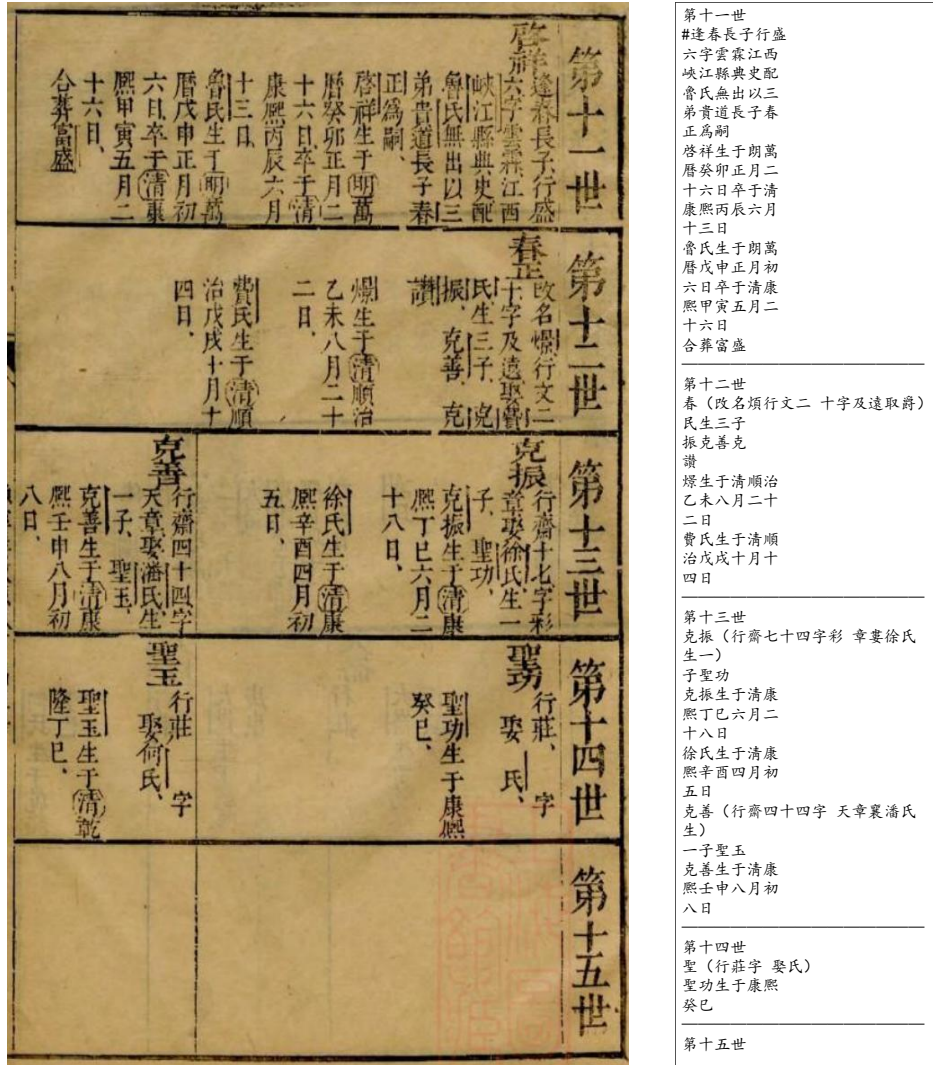 第十一世
啓祥
逢春長子行盛
六字雲霖江西
峽江縣典史配
魯氏無出以三
弟貴道長子春
正爲嗣、
啓祥生于明萬
曆癸卯正月二
十六日卒于清
康熙丙辰六月
十三日、
魯氏生于明萬
曆戊申正月初
六日卒于清康
熙甲寅五月二
十六日、
合葬富盛
第十二世
春正
改名燝行文二
十字及遠娶費
氏生三子、克
振、克善、克
讚
燝生于清順治
乙未八月二十
二日、
費氏生于清順
治戊戌十月十
四日、
第十三世
克振
行齋十七字彩
章娶徐氏生一
子、聖功、
克振生于清康
熙丁巳六月二
十八日、
徐氏生于清康
熙辛酉四月初
五日、
克善
行齋四十四字
天章娶潘氏生
一子、聖玉、
克善生于清康
熙壬申八月初
八日、
第十四世
聖功
行莊、字
娶 氏、
聖功生于康熙
癸巳、
聖玉
行莊 字
娶何氏、
聖玉生于清乾
隆丁巳、
第十五世
第十一世
#逢春長子行盛
六字雲霖江西
峽江縣典史配
魯氏無出以三
弟貴道長子春
正爲嗣
啓祥生于朗萬
曆癸卯正月二
十六日卒于清
康熙丙辰六月
十三日
魯氏生于朗萬
曆戊申正月初
六日卒于清康
熙甲寅五月二
十六日
合葬富盛
第十二世
春（改名煩行文二 十字及遠取爵）
民生三子
振克善克
讚
燝生于清順治
乙未八月二十
二日
費氏生于清順
治戊戌十月十
四日
第十三世
克振（行齋七十四字彩 章婁徐氏
生一）
子聖功
克振生于清康
熙丁巳六月二
十八日
徐氏生于清康
熙辛酉四月初
五日
克善（行齋四十四字 天章襄潘氏
生）
一子聖玉
克善生于清康
熙壬申八月初
八日
第十四世
聖（行莊字 娶氏）
聖功生于康熙
癸巳
第十五世